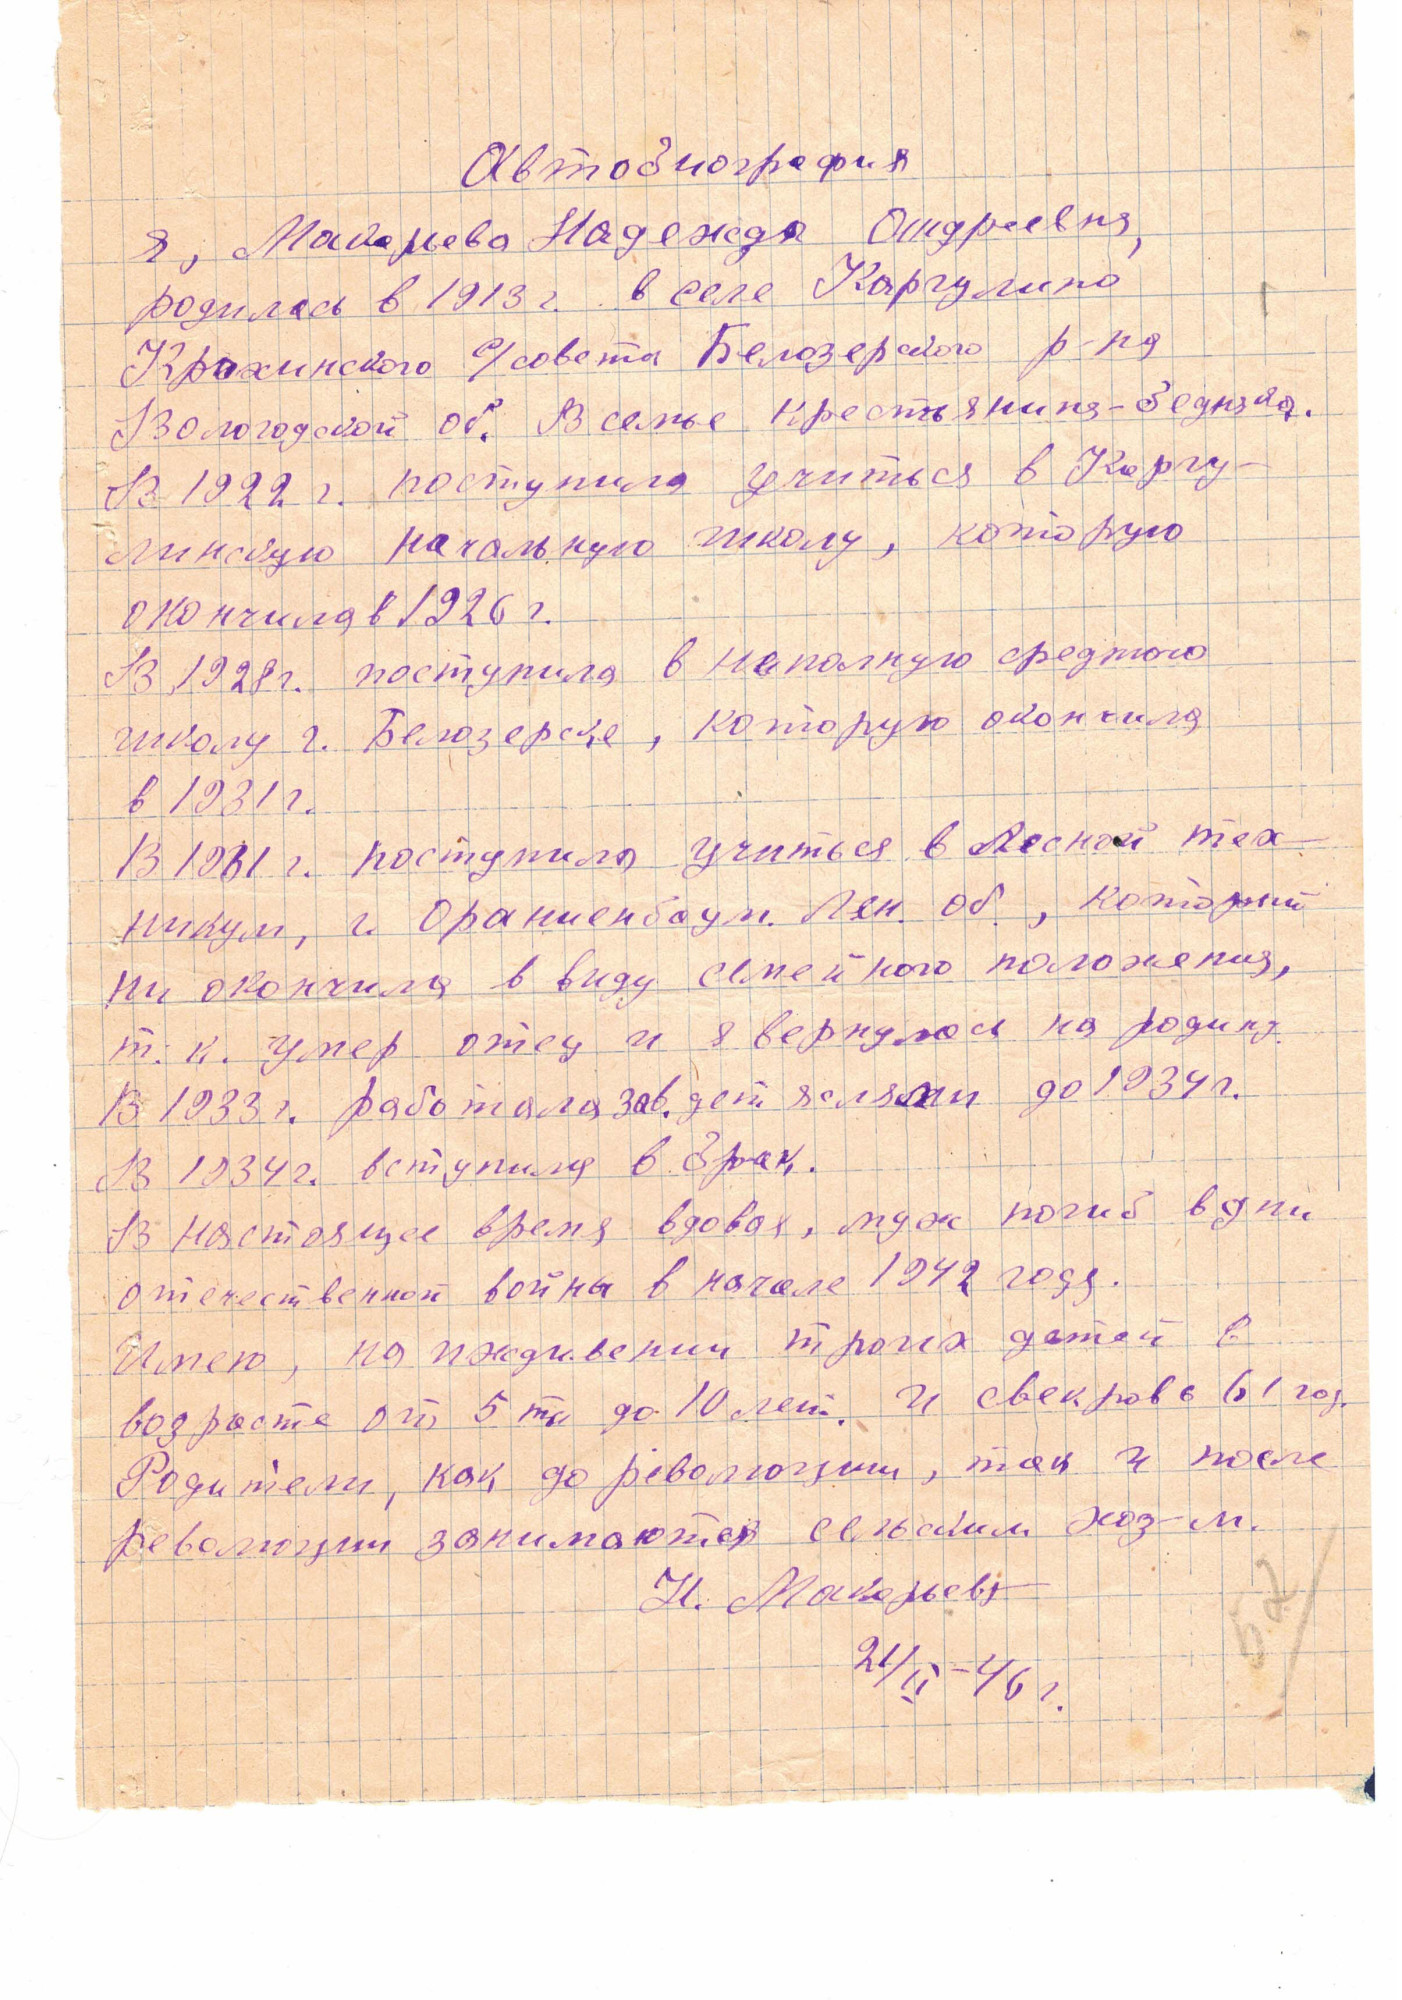 Автобиография
Я, Макарьева Надежда Андреевна,
родилась в 1913 г. в селе Каргулино
Крохинского с/совета Белозерского р-на
Вологодской об. В семье крестьянина-бедняка.
В 1922 г. поступила учиться в Каргу-
линскую начальную школу, которую
окончила в 1926 г.
В 1928 г. поступила в неполную среднюю
школу г. Белозерске, которую окончила
в 1931 г.
В 1931 г. поступила учиться в Лесной тех-
никум, г. Ораниенбаум. Лен. об., который
ни окончила в виду семейного положения,
т. к. умер отец и я вернулась на родину.
В 1933 г. работала зав. дет яслями до 1934 г.
В 1934 г. вступила в брак.
В настоящее время вдовая, муж погиб в дни
отечественной войны в начале 1942 года.
Имею, на иждивении троих детей в
возрасте от 5 ти до 10 лет. И свекровь 61 год.
Родители, как до революции, так и после
революции занимаются сельским хоз-м.
Н. Макарьева
21/II-46 г.
57